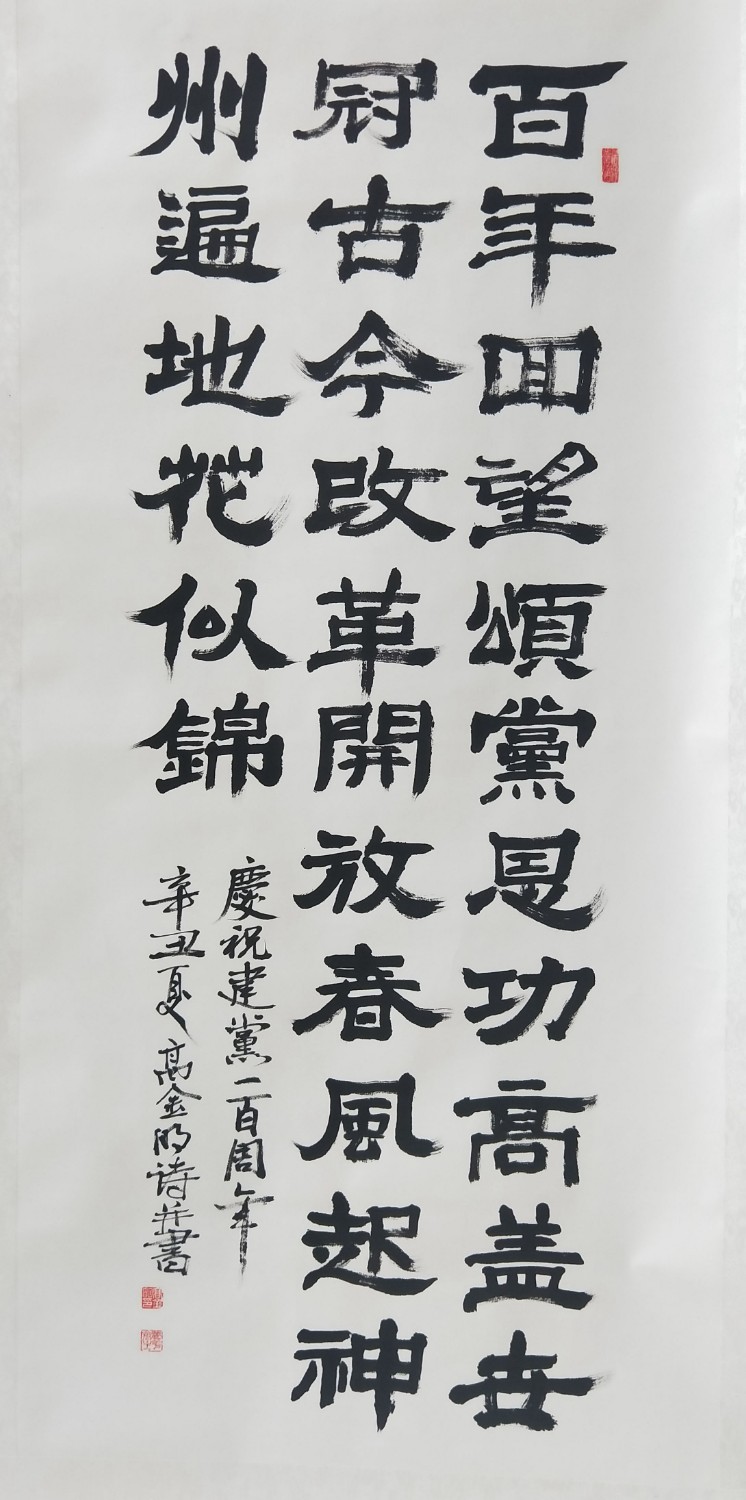 百年回望頌黨恩功高盖世
冠古今改革開放春風起神
州遍地花似錦
慶祝建黨一百周年
辛丑夏高金明詩并書